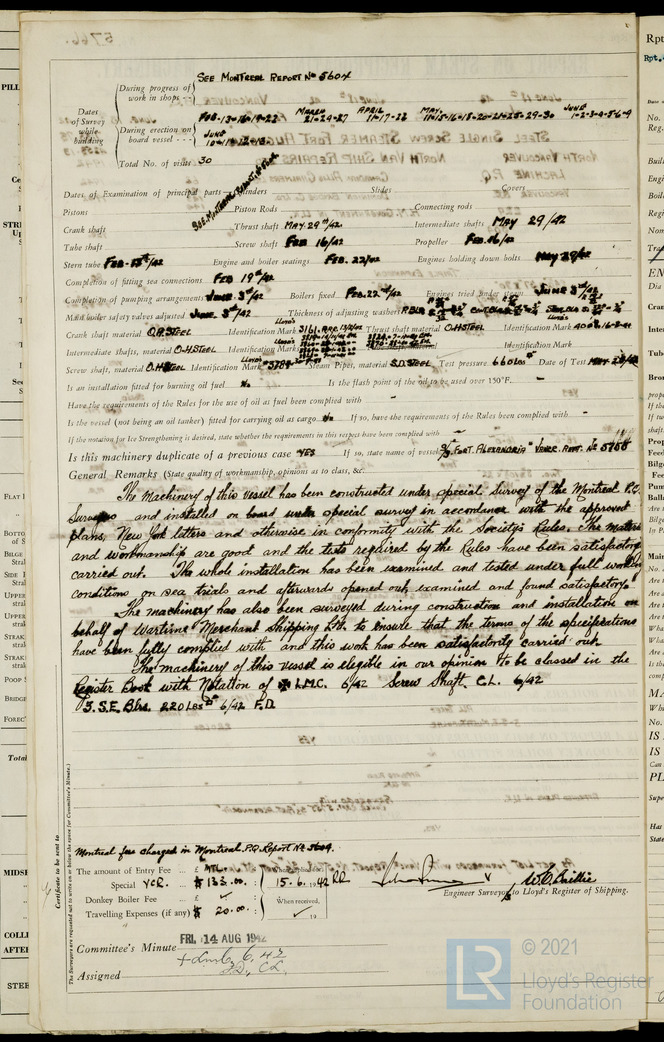 SEE MONTREAL REPORT No 5604
During progress of work in shops --
Dates of Survey while building
FEB-13-16-19-22 MARCH 21-24-27 APRIL 11-17-22 MAY 11-15-16-18-20-21-25-29-30 JUNE 1-2-3-4-5-6-9
During erection on board vessel ---
JUNE 10-11-12-13
Total No. of visits 30
Dates of Examination of principal parts—Cylinders Slides Covers
SEE MONTREAL REPORT No 5604
Pistons Piston Rods Connecting rods
Crank shaft Thrust shaft MAY. 29th/42 Intermediate shafts MAY 29/42
Tube shaft Screw shaft FEB 16/42 Propeller FEB. 16/42
Stern tube FEB-13th/42 Engine and boiler seatings FEB. 22/42 Engines holding down bolts MAY 29/42
Completion of fitting sea connections FEB 19th/42
Completion of pumping arrangements JUNE 3rd/42 Boilers fixed FEB. 22nd/42 Engines tried under steam JUNE 3rd/42
Main boiler safety valves adjusted JUNE 3rd/42 Thickness of adjusting washers
Crank shaft material O.H. STEEL Identification Mark Lloyd's 3161 Thrust shaft material O.H STEEL Identification Mark
Intermediate shafts, material O.H STEEL Identification Marks Identification Mark
Screw shaft, material O.H STEEL Identification Mark Steam Pipes, material S.D. STEEL Test pressure 660 LBS Date of Test
Is an installation fitted for burning oil fuel No Is the flash point of the oil to be used over 150°F. -
Have the requirements of the Rules for the use of oil as fuel been complied with -
Is the vessel (not being an oil tanker) fitted for carrying oil as cargo No If so, have the requirements of the Rules been complied with -
If the notation for Ice Strengthening is desired, state whether the requirements in this respect have been complied with -
Is this machinery duplicate of a previous case YES If so, state name of vessel S/S "FORT ALEXANDRIA" VANC. RPT. No 5755
General Remarks (State quality of workmanship, opinions as to class, &c.
The Machinery of this vessel has been constructed under special Survey of the Montreal P.Q.
Surveyors and installed on board under special survey in accordance with the approved
plans, New York letters and otherwise in conformity with the Society's Rules. The materials
and workmanship are good and the tests required by the Rules have been satisfactory
carried out. The whole installation has been examined and tested under full working
conditions on sea trials and afterwards opened out, examined and found satisfactory.
The machinery has also been surveyed during construction and installation on
behalf of Wartime Merchant Shipping Ltd. to ensure that the terms of the specifications
have been fully complied with and this work has been satisfactorily carried out.
The machinery of this vessel is eligible in our opinion to be classed in the
Register Book with Notation of ✠ L.M.C. 6/42 Screw Shaft C.L. 6/42
3. S.E. Blrs. 220 LBS 6/42 F.D.
Certificate to be sent to
The Surveyors are requested not to write on or below the space for Committee's Minute.
Montreal fees charged in Montreal. P.Q. Report No 5604.
The amount of Entry Fee .. £ MTL. :
Special VCR. .. $ 133.00. : 15. 6. 1942
Donkey Boiler Fee .. £ : When received,
Travelling Expenses (if any) $ 20.00. : 19
W.O. Baillie
Engineer Surveyors to Lloyd's Register of Shipping.
Committee's Minute FRI. 14 AUG 1942
Assigned + Lmc 6,42
FD, CL.
© 2021
LR
Lloyd's Register
Foundation